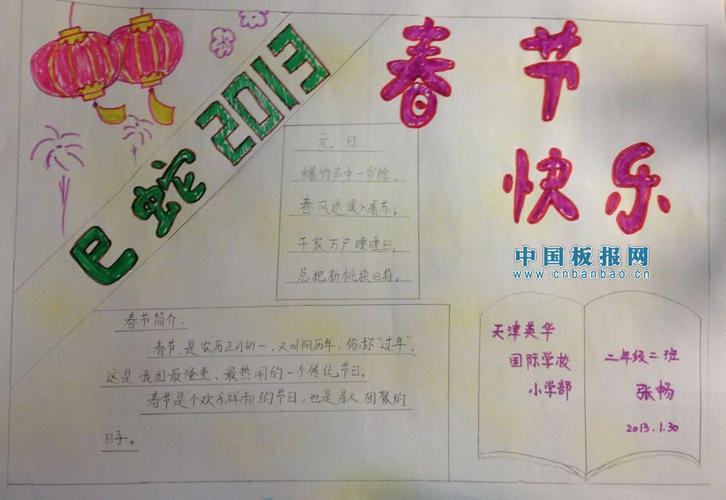 巳蛇2013
春节
快乐
元日
爆竹声中一岁除,
春风送暖入屠苏;
千家万户曈曈日,
总把新桃换旧符。
中国板报网
www.cnbanbao.cn
春节简介:
春节,是农历正月初一,又叫阴历年,俗称"过年",
这是我国最隆重、最热闹的一个传统节日。
春节是个欢乐祥和的节日,也是亲人团聚的
日子。
天津英华
国际学校
小学部
二年级二班
张畅
2013.1.30